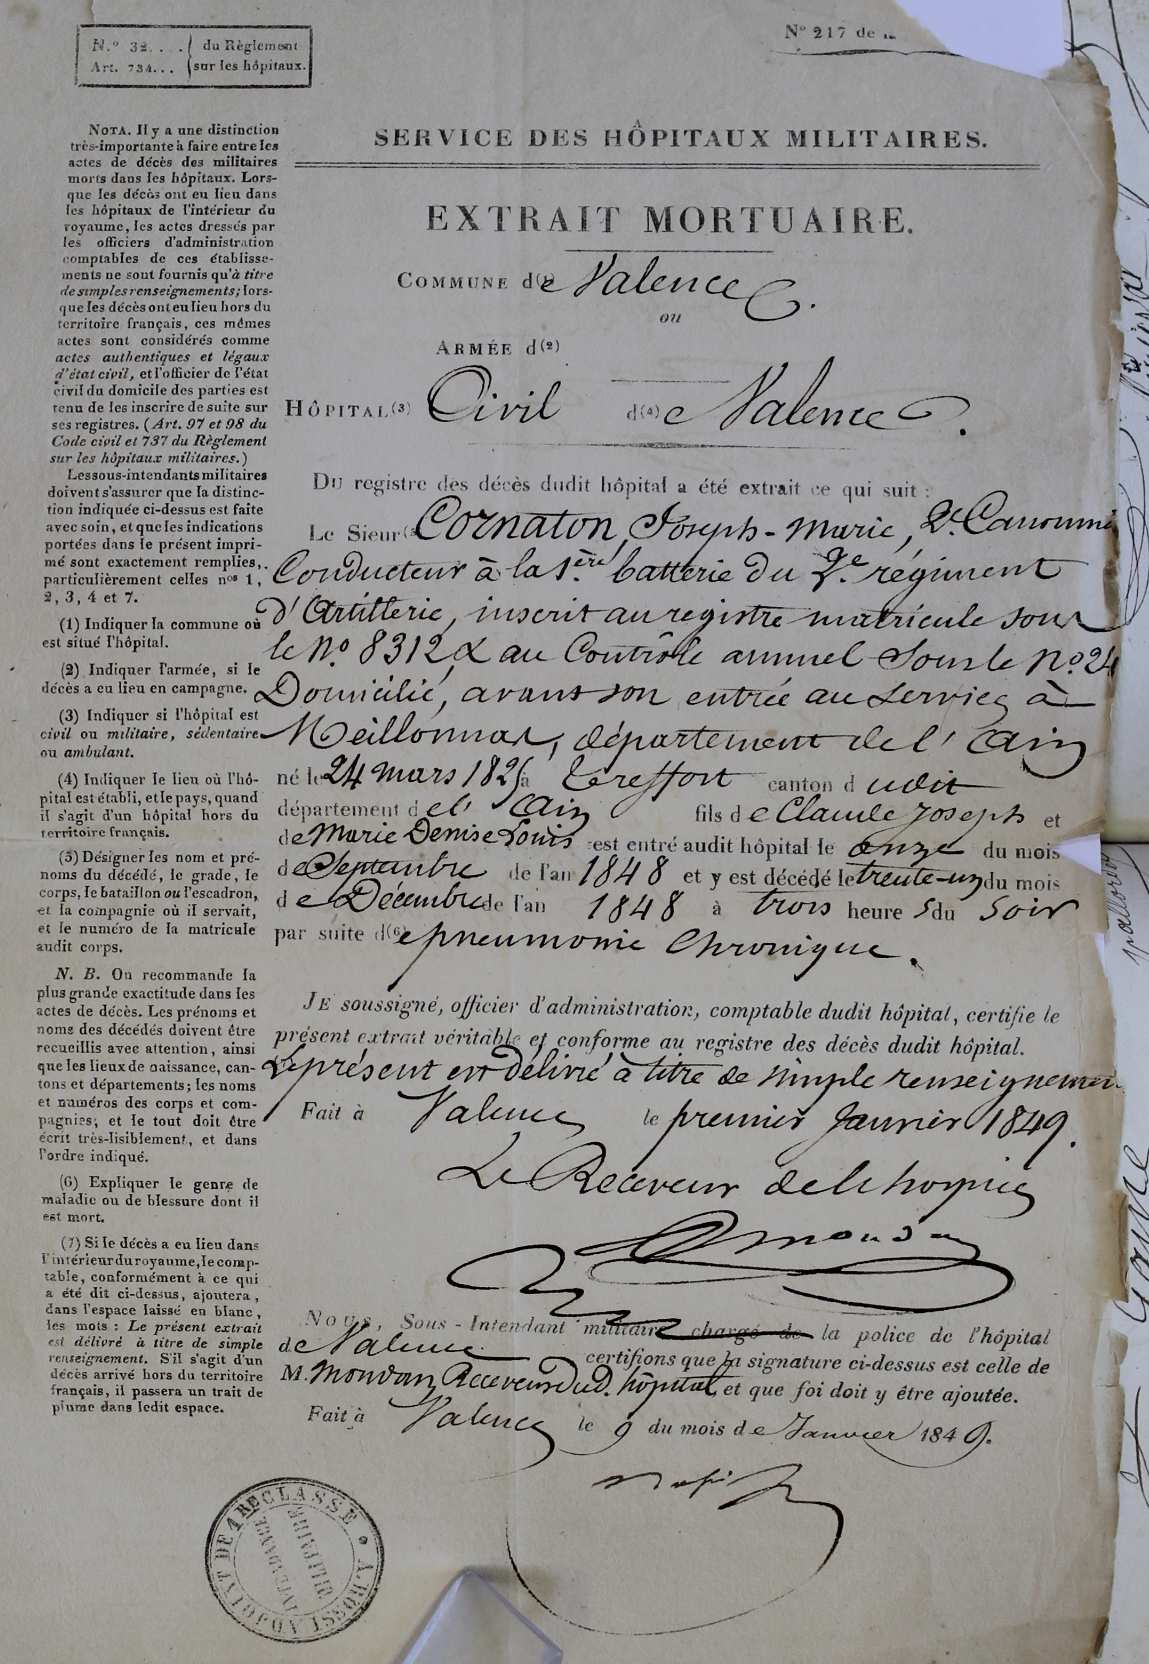 N.º 32.... du Règlement
Art. 734... sur les hôpitaux.
Nº 217 de
NOTA. Il y a une distinction
très-importante à faire entre les
actes de décès des militaires
morts dans les hôpitaux. Lors-
que les décès ont eu lieu dans
les hôpitaux de l'intérieur du
royaume, les actes dressés par
les officiers d'administration
comptables de ces établisse-
ments ne sont fournis qu'à titre
de simples renseignements; lors-
que les décès ont eu lieu hors du
territoire français, ces mêmes
actes sont considérés comme
actes authentiques et légaux
d'état civil, et l'officier de l'état
civil du domicile des parties est
tenu de les inscrire de suite sur
ses registres. (Art. 97 et 98 du
Code civil et 737 du Règlement
sur les hôpitaux militaires.)
Les sous-intendants militaires
doivent s'assurer que la distinc-
tion indiquée ci-dessus est faite
avec soin, et que les indications
portées dans le présent impri-
mé sont exactement remplies,
particulièrement celles nos 1,
2, 3, 4 et 7.
(1) Indiquer la commune où
est situé l'hôpital.
(2) Indiquer l'armée, si le
décès a eu lieu en campagne.
(3) Indiquer si l'hôpital est
civil ou militaire, sédentaire
ou ambulant.
(4) Indiquer le lieu où l'hô-
pital est établi, et le pays, quand
il s'agit d'un hôpital hors du
territoire français.
(5) Désigner les nom et pré-
noms du décédé, le grade, le
corps, le bataillon ou l'escadron,
et la compagnie où il servait,
et le numéro de la matricule
audit corps.
N. B. On recommande la
plus grande exactitude dans les
actes de décès. Les prénoms et
noms des décédés doivent être
recueillis avec attention, ainsi
que les lieux de naissance, can-
tons et départements; les noms
et numéros des corps et com-
pagnies; et le tout doit être
écrit très-lisiblement, et dans
l'ordre indiqué.
(6) Expliquer le genre de
maladie ou de blessure dont il
est mort.
(7) Si le décès a eu lieu dans
l'intérieur du royaume, le comp-
table, conformément à ce qui
a été dit ci-dessus, ajoutera,
dans l'espace laissé en blanc,
les mots : Le présent extrait
est délivré à titre de simple
renseignement. S'il s'agit d'un
décès arrivé hors du territoire
français, il passera un trait de
plume dans ledit espace.
SERVICE DES HÔPITAUX MILITAIRES.
EXTRAIT MORTUAIRE.
COMMUNE d(1)e Valence.
ou
ARMÉE d(2)
HÔPITAL(3) Civil d(4)e Valence.
DU registre des décès dudit hôpital a été extrait ce qui suit :
Le Sieur(5 Cornaton, Joseph-Marie, 2e. Canonnie
Conducteur à la 1ère. batterie du 2e. régiment
d'Artillerie, inscrit au registre matricule sous
le No. 8312 & au Contrôle annuel sous le No. 24
Domicilié, avant son entrée au service à
Meillonnas, département de l'Ain
né le 24 mars 1825 à Treffort canton dudit
département de l'Ain fils de Claude Joseph et
de Marie Denise Louis est entré audit hôpital le onze du mois
de Septembre de l'an 1848 et y est décédé le trente-un du mois
de Décembre de l'an 1848 à trois heures du soir
par suite d(6)e pneumonie chronique.
JE soussigné, officier d'administration, comptable dudit hôpital, certifie le
présent extrait véritable et conforme au registre des décès dudit hôpital.
Le présent est délivré à titre de simple renseignemen
Fait à Valence le premier Janvier 1849.
Le Receveur de l'hospice
Mondan
Nous, Sous-Intendant militaire chargé de la police de l'hôpital
de Valence certifions que la signature ci-dessus est celle de
M. Mondan Receveur dud. hôpital et que foi doit y être ajoutée.
Fait à Valence le 9 du mois de Janvier 1849.
A. ROSSI ADJOINT DE 1RE CLASSE
INTENDANCE
MILITAIRE